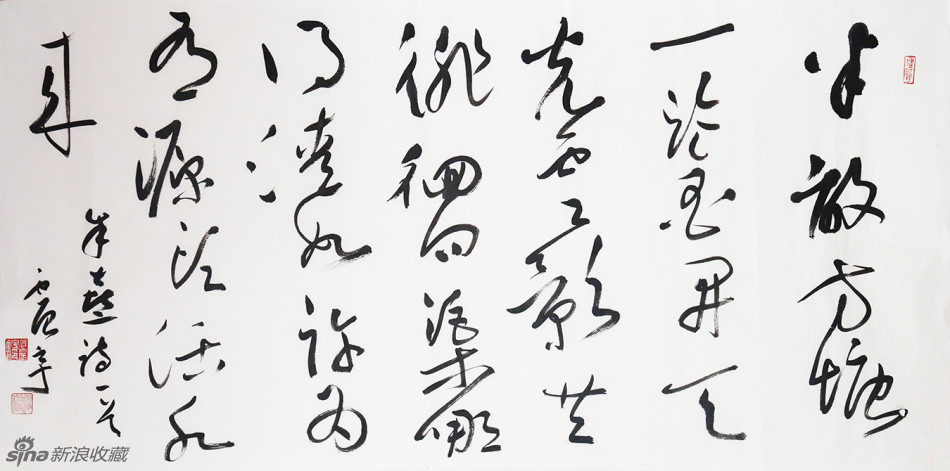 半畝方塘
一鑒開天
光雲影共
徘徊問渠那
得清如許為
有源頭活水
來
朱熹詩一首
sina新浪收藏